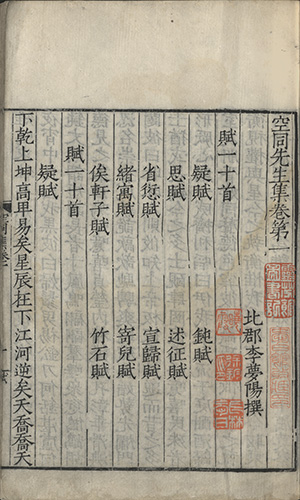 空同先生集卷第一
北郡李夢陽撰
賦一十首
疑賦
鈍賦
思賦
述征賦
省愆賦
宣歸賦
緒寓賦
寄兒賦
俟軒子賦
竹石賦
賦一十首
疑賦
下乾上坤高卑易矣星辰在下江河逆矣天喬喬天